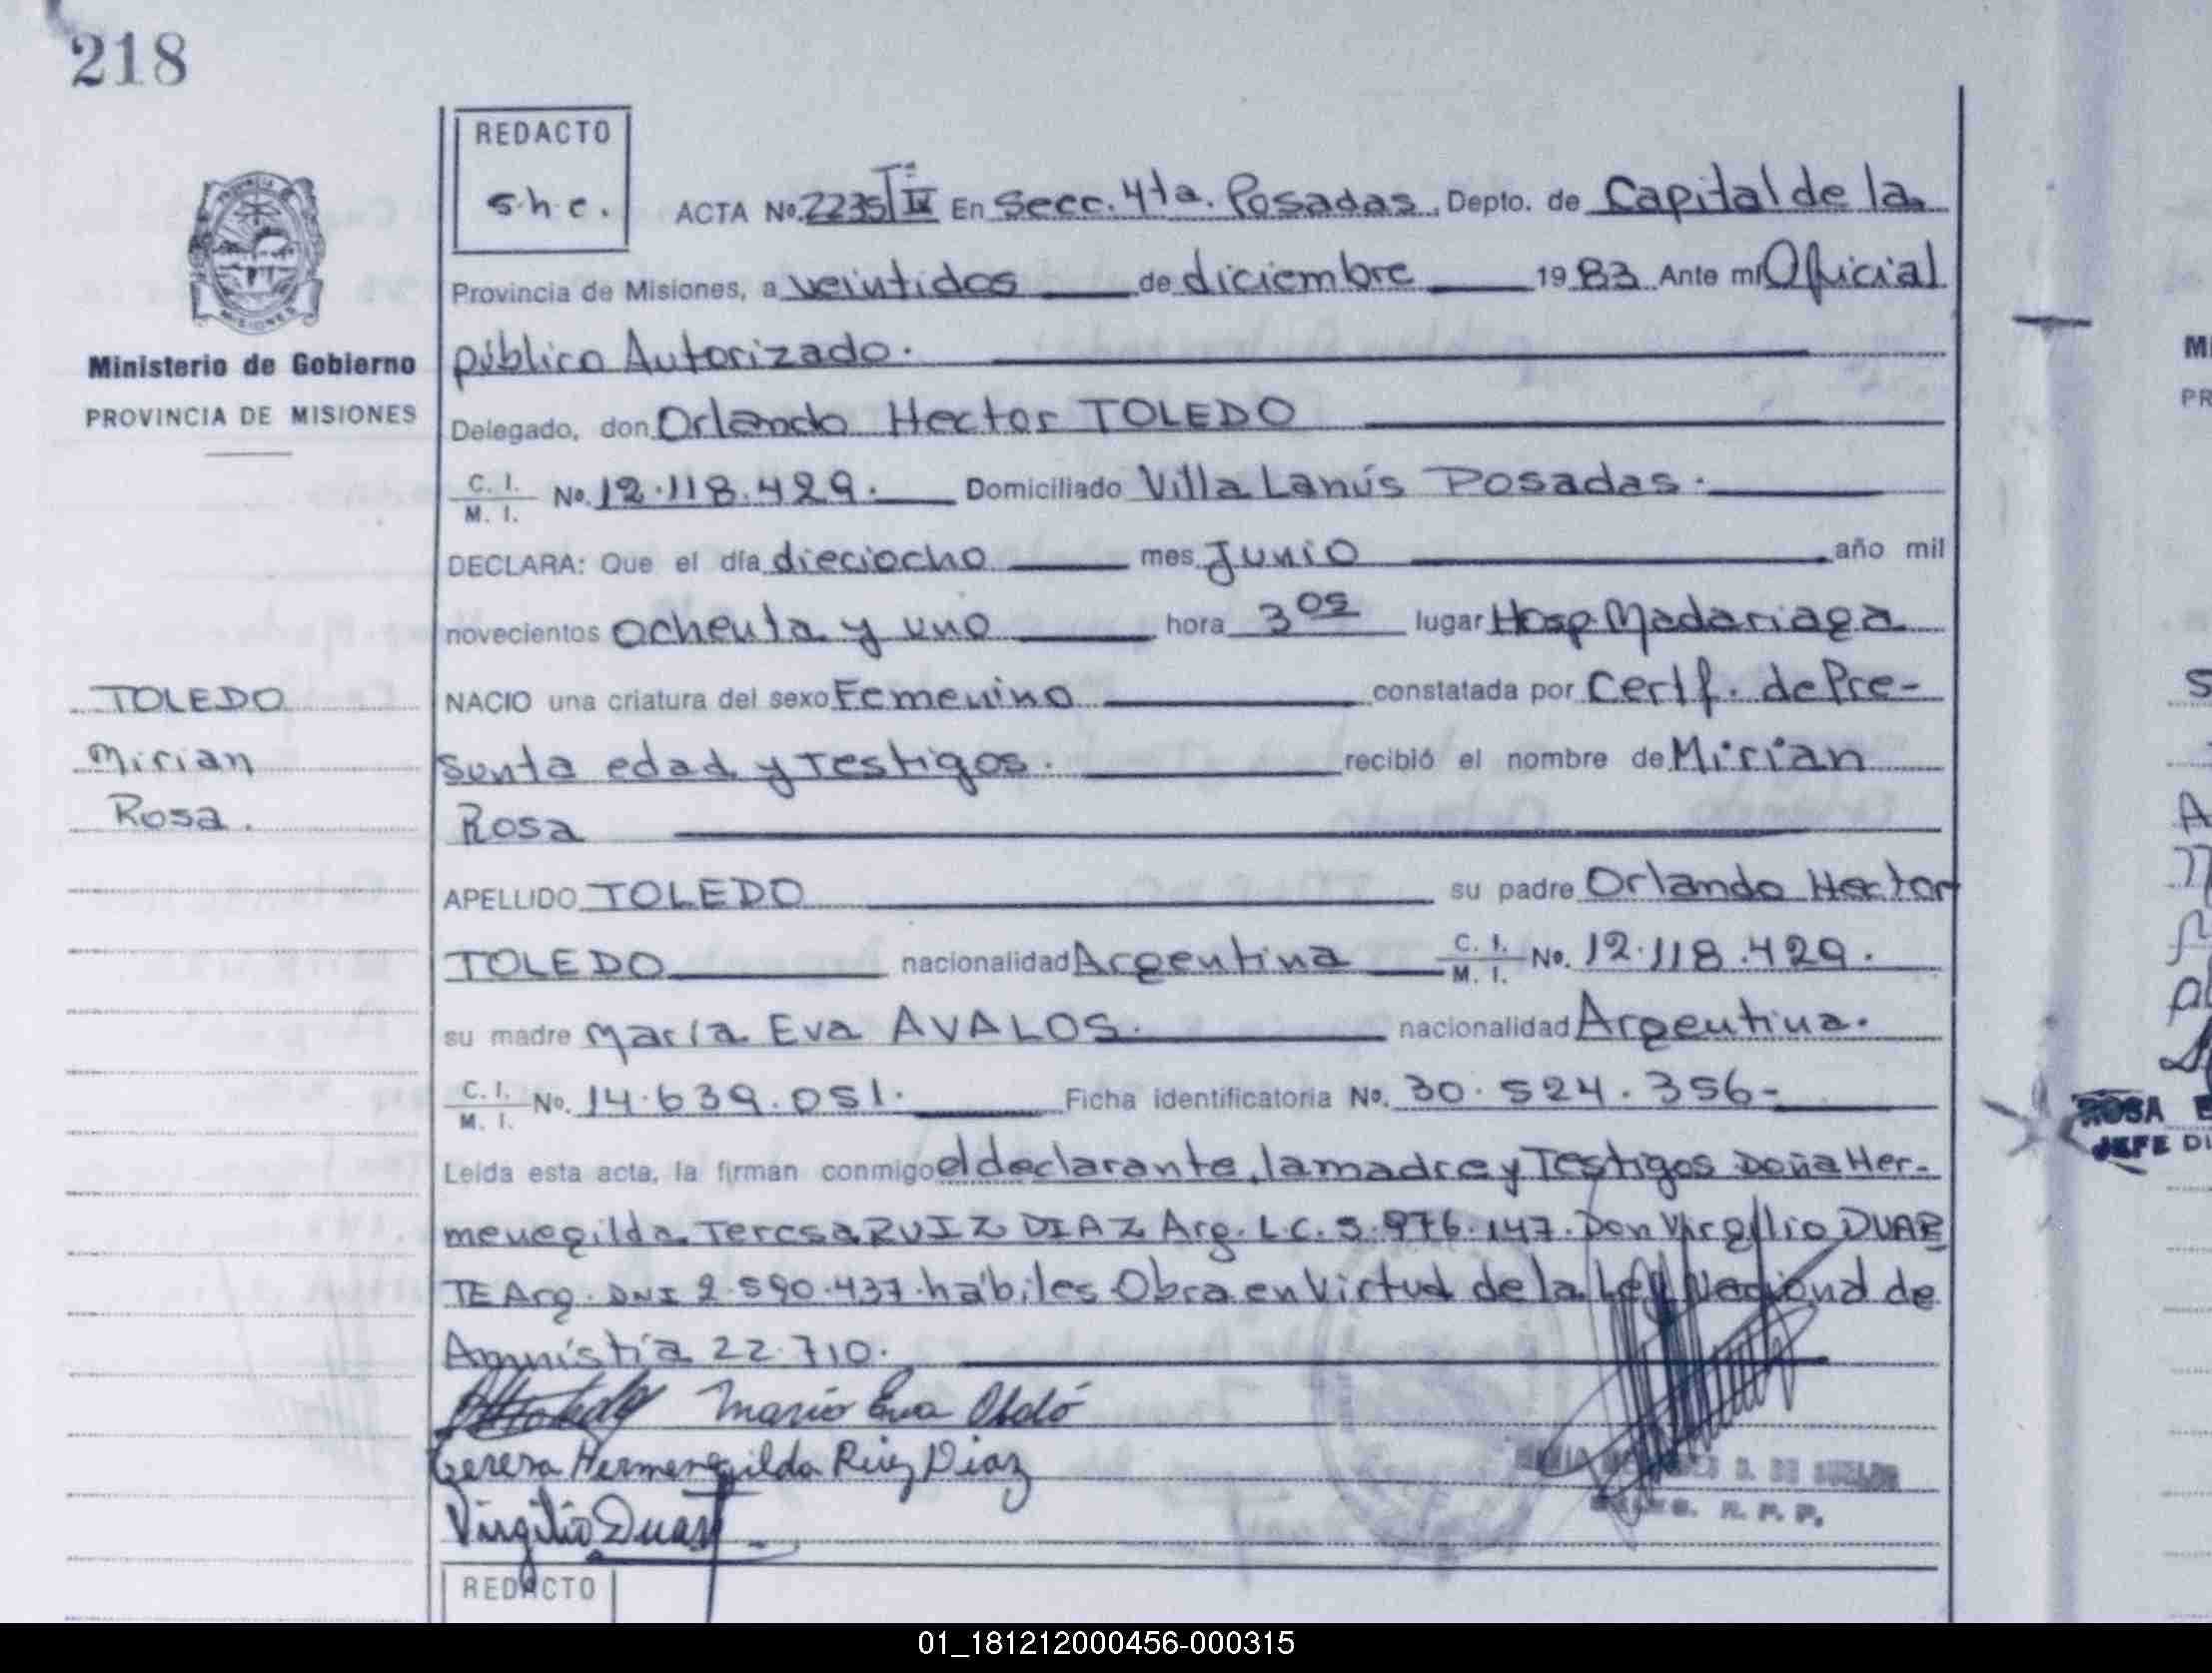 218
REDACTO
s.h.c.
ACTA No. 2235 Tº IV En Secc. 4ta. Posadas. Depto. de Capital de la
Provincia de Misiones, a veintidos de diciembre 1983 Ante mí Oficial
público Autorizado.
Delegado, don Orlando Hector TOLEDO
C. I. M. I. No. 12.118.429. Domiciliado Villa Lanús Posadas.
DECLARA: Que el día dieciocho mes Junio año mil
novecientos ochenta y uno hora 3 05 lugar Hosp. Madariaga
NACIO una criatura del sexo Femenino constatada por Certf. de Pre-
sunta edad y Testigos. recibió el nombre de Mirian
Rosa
APELLIDO TOLEDO su padre Orlando Hector
TOLEDO nacionalidad Argentina C. I. M. I. No. 12.118.429.
su madre María Eva AVALOS. nacionalidad Argentina.
C. I. M. I. No. 14.639.051. Ficha identificatoria No. 30.524.356-
Leída esta acta, la firman conmigo el declarante, la madre y Testigos Doña Her-
menegilda Teresa RUIZ DIAZ Arg. L.C. 5.976.147. Don Virgilio DUAR
TE Arg. DNI 2.590.437. hábiles. Obra en Virtud de la Ley Nacional de
Amnistía 22.710.
Teresa Hermenegilda Ruiz Diaz
Virgilio Duart
REDACTO
Ministerio de Gobierno
PROVINCIA DE MISIONES
TOLEDO
Mirian
Rosa.
ROSA
JEFE
01_181212000456-000315